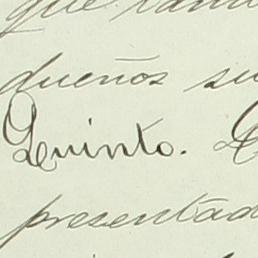 que
dueños su
Quinto.
presentad